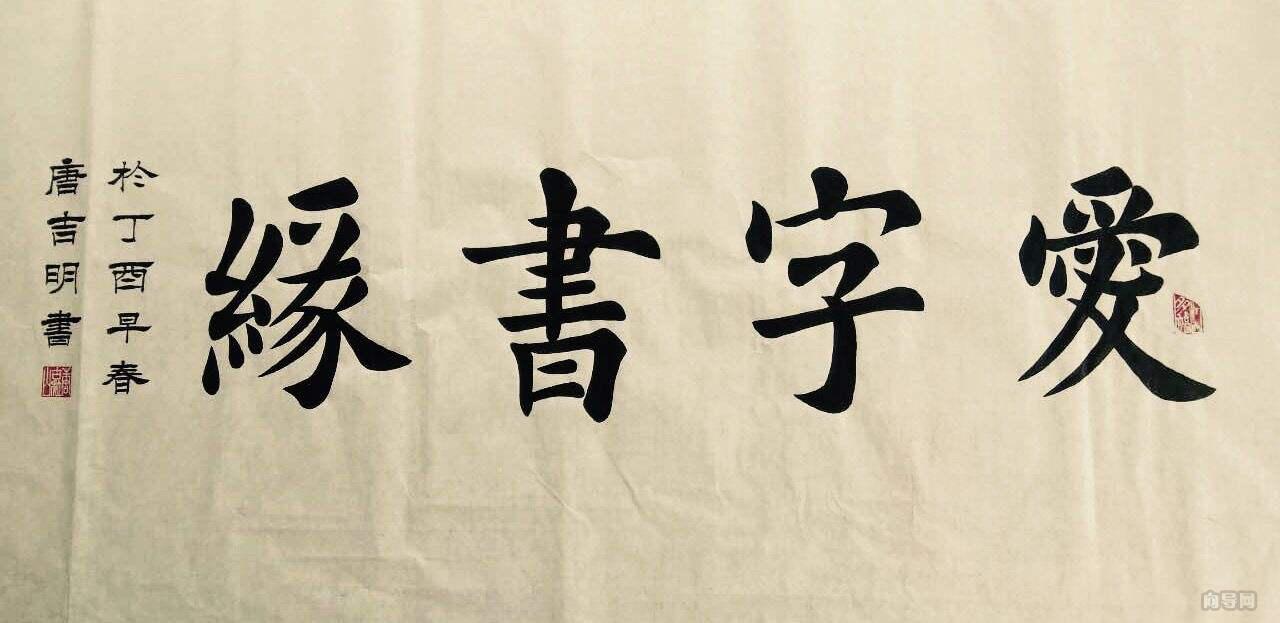 愛字書緣
於丁酉早春
唐吉明書
向导网